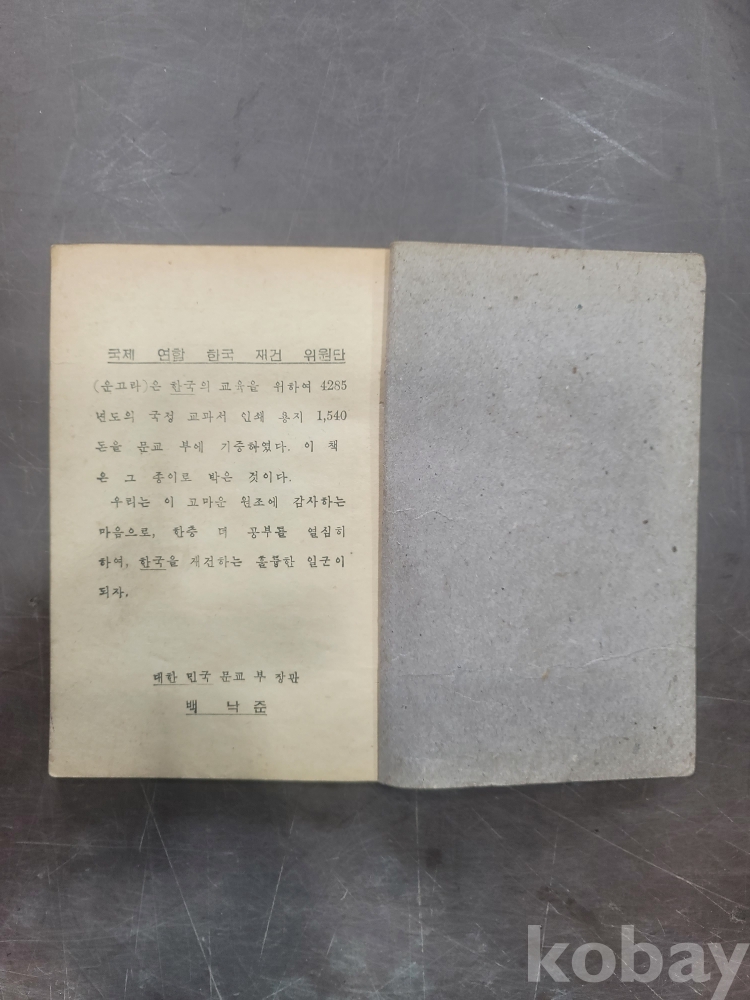 국제 연합 한국 재건 위원단
(운끄라)은 한국의 교육을 위하여 4285
년도의 국정 교과서 인쇄 용지 1,540
돈을 문교 부에 기증하였다. 이 책
은 그 종이로 박은 것이다.
우리는 이 고마운 원조에 감사하는
마음으로, 한층 더 공부를 열심히
하여, 한국을 재건하는 훌륭한 일군이
되자.
대한 민국 문교 부 장관
백 낙 준
kobay